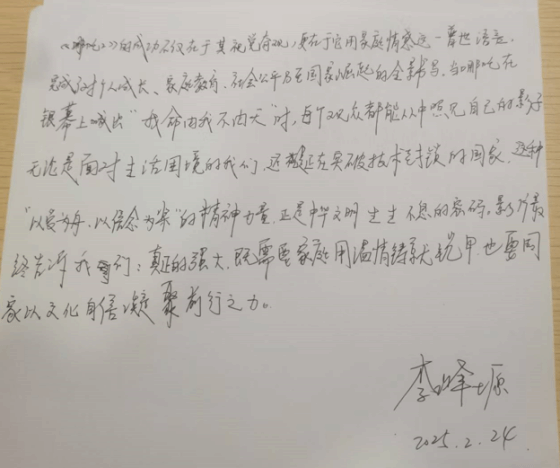 《哪吒2》的成功不仅在于其视觉奇观,更在于它用家庭情感这一普世语言,
完成了对个人成长、家庭教育、社会公平乃至国家崛起的全景书写。当哪吒在
银幕上喊出"我命由我不由天"时,每个观众都能从中照见自己的影子
无论是面对生活困境的我们,还是正在突破技术封锁的国家,这种
"以爱为舟,以信念为桨"的精神力量,正是中华文明生生不息的密码。影片最
终告诉我们:真正的强大,既需要家庭用温情铸就铠甲,也要国
家以文化自信凝聚前行之力。
李峰塬
2025.2.24